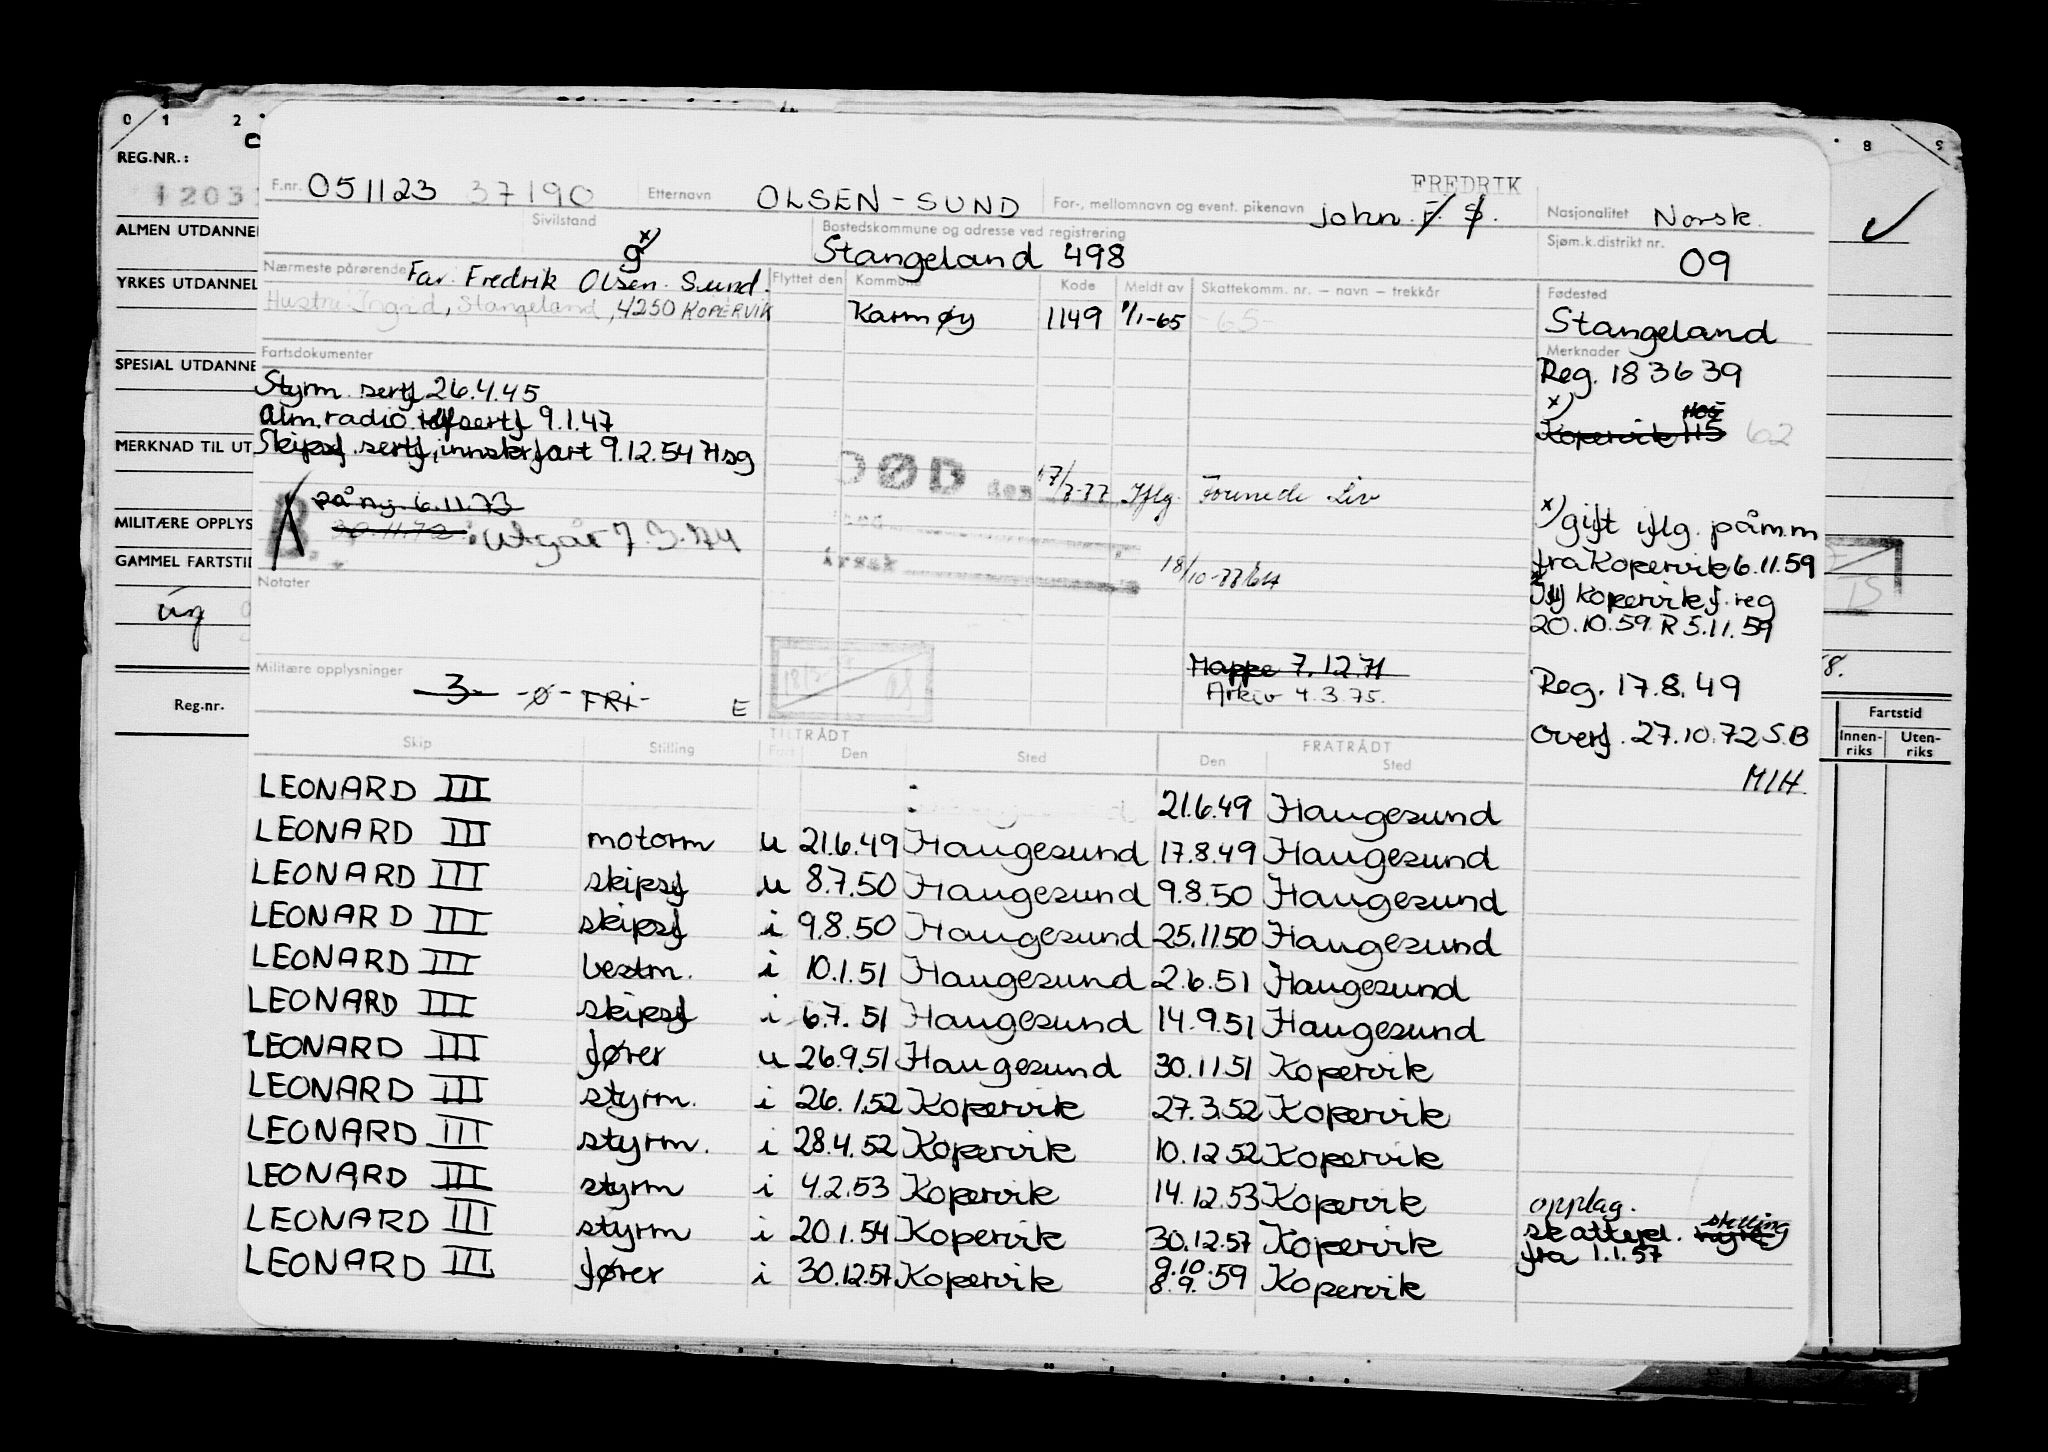 0 1 2 8 9
REG.NR.:
ALMEN UTDANNE
YRKES UTDANNEL
SPESIAL UTDANNE
MERKNAD TIL UT
MILITÆRE OPPLYS
GAMMEL FARTSTI
ing
Reg.nr.
F.nr. 051123 37190 Etternavn OLSEN-SUND For-, mellomnavn og event. pikenavn John F. S. FREDRIK Nasjonalitet Norsk.
Sivilstand g x) Bostedskommune og adresse ved registrering Stangeland 498 Sjøm.k.distrikt nr. 09
Nærmeste pårørende Far. Fredrik Olsen-Sund.
Hustru: Ingrid, Stangeland, 4250 KOPERVIK
Flyttet den Kommune Kode Meldt av Skattekomm. nr. – navn – trekkår Fødested
Karmøy 1149 1/1-65 -65- Stangeland
Fartsdokumenter
Styrm. sertf 26.4.45
Alm. radio tlf sertf 9.1.47
Skipsf. sertf, innskrfart 9.12.54 Hsg
B. på ny. 6.11.73
30.11.72 : Utgår 7.3.74
DØD den 17/8-77 Iflg. Forenede Liv
Årsak
18/10-77
Merknader
Reg. 183639
x)
Kopervik 115 62
x) gift iflg. påm.m
fra Kopervik 6.11.59
Kopervik f. reg
20.10.59 R 5.11.59
Reg. 17.8.49
Overf. 27.10.72 S.B
M/H.
Notater
Militære opplysninger 3 -Ø- FRI- E
Mappe 7.12.71
Arkiv 4.3.75.
8.
Fartstid
Innen-riks Uten-riks
Skip Stilling TILTRÅDT Fart Den Sted FRATRÅDT Den Sted
LEONARD III 21.6.49 Haugesund
LEONARD III motorm u 21.6.49 Haugesund 17.8.49 Haugesund
LEONARD III skipsf u 8.7.50 Haugesund 9.8.50 Haugesund
LEONARD III skipsf i 9.8.50 Haugesund 25.11.50 Haugesund
LEONARD III bestm. i 10.1.51 Haugesund 2.6.51 Haugesund
LEONARD III skipsf i 6.7.51 Haugesund 14.9.51 Haugesund
LEONARD III fører u 26.9.51 Haugesund 30.11.51 Kopervik
LEONARD III styrm. i 26.1.52 Kopervik 27.3.52 Kopervik
LEONARD III styrm. i 28.4.52 Kopervik 10.12.52 Kopervik
LEONARD III styrm i 4.2.53 Kopervik 14.12.53 Kopervik opplag.
LEONARD III styrm i 20.1.54 Kopervik 30.12.57 Kopervik skattepl. stilling
fra 1.1.57
LEONARD III fører i 30.12.57 Kopervik 9.10. 8.9.59 Kopervik